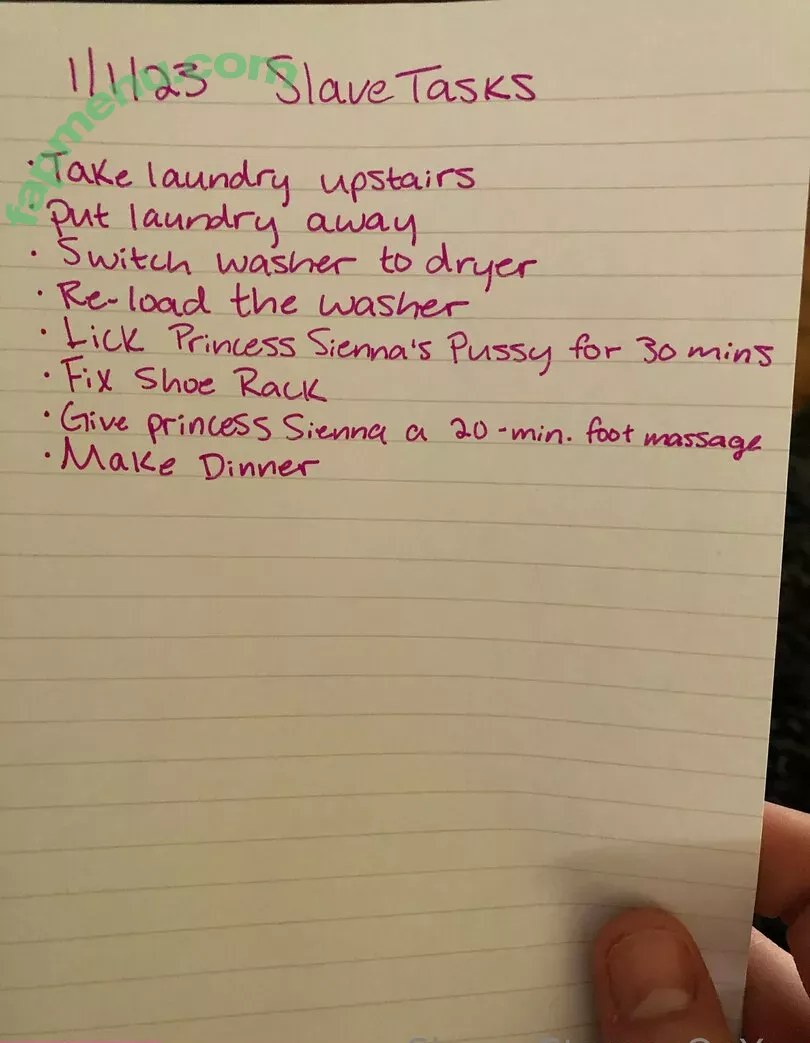 fapmenu.com
1/1/23 Slave Tasks
· Take laundry upstairs
· Put laundry away
· Switch washer to dryer
· Re-load the washer
· Lick Princess Sienna's Pussy for 30 mins
· Fix Shoe Rack
· Give princess Sienna a 20-min. foot massage
· Make Dinner